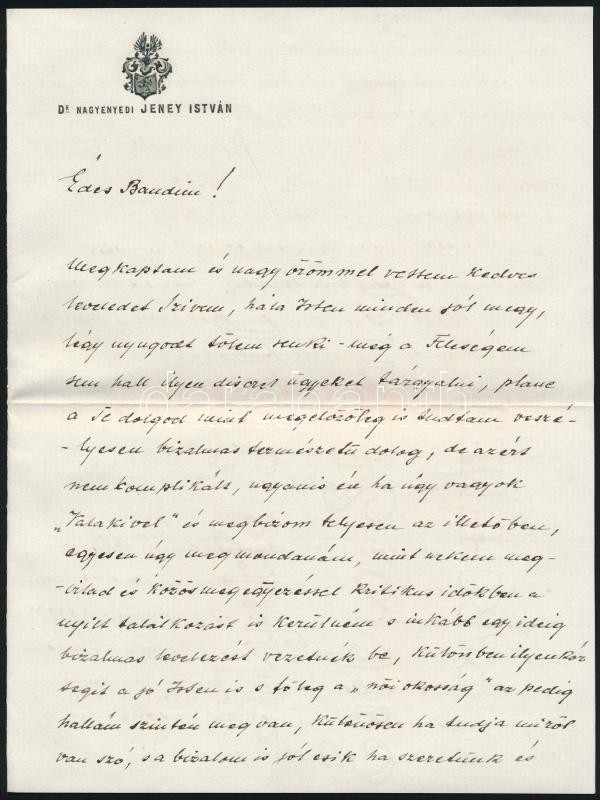 Dr. NAGYENYEDI JENEY ISTVÁN
Édes Bandim!
Megkaptam és nagy örömmel vettem kedves
leveledet Szivem, hála Isten minden jól megy,
légy nyugodt tőlem senki - még a Feleségem
sem hall ilyen discret ügyeket tárgyalni, plane
a Te dolgod mint megelőzőleg is tudtam veszé-
-lyesen bizalmas természetű dolog, de azért
nem komplikált, ugyanis én ha úgy vagyok
„Valakivel" és megbizom teljesen az illetőben,
egyesen úgy megmondanám, mint nekem meg-
-irtad és közös megegyezéssel kritikus időkben a
nyilt találkozást is kerülném s inkább egy ideig
bizalmas levelezést vezetnék be, különben ilyenkor
segit a jó Isten is s főleg a „női okosság" az pedig
hallám szintén megvan, különösen ha tudja miről
van szó, s a bizalom is jól esik ha szeretünk és
darabanth